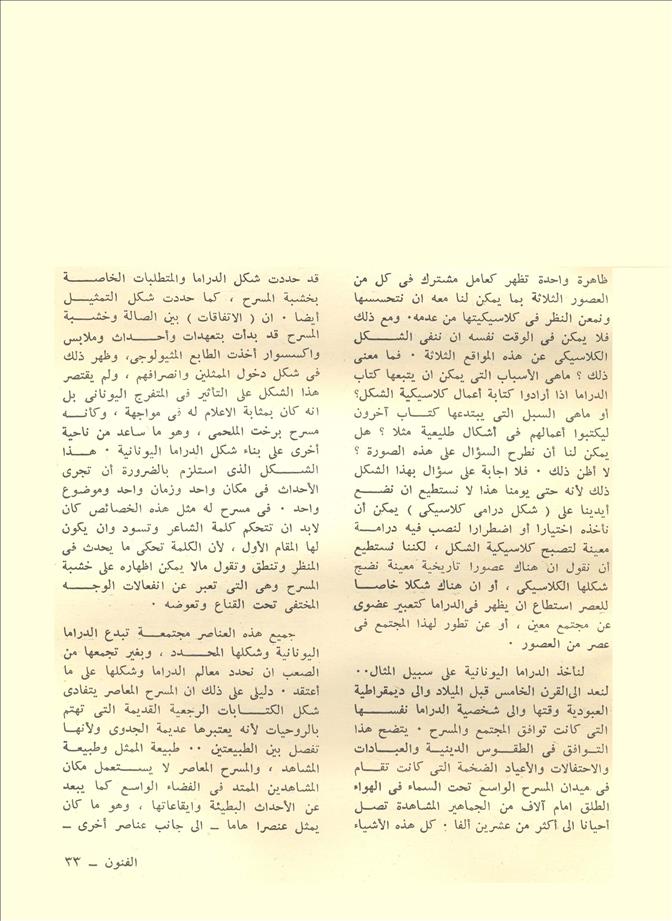 ظاهرة واحدة تظهر كعامل مشترك فى كل من
العصور الثلاثة بما يمكن لنا معه ان نتحسسها
ونمعن النظر فى كلاسيكيتها من عدمه٠ ومع ذلك
فلا يمكن فى الوقت نفسه ان ننفى الشـــــكل
الكلاسيكى عن هذه المواقع الثلاثة ٠ فما معنى
ذلك ؟ ماهى الأسباب التى يمكن ان يتبعها كتاب
الدراما اذا أرادوا كتابة أعمال كلاسيكية الشكل؟
أو ماهى السبل التى يبتدعها كتــاب آخرون
ليكتبوا أعمالهم فى أشكال طليعية مثلا ؟ هل
يمكن لنا أن نطرح السؤال على هذه الصورة ؟
لا أظن ذلك ٠ فلا اجابة على سؤال بهذا الشكل
ذلك لأنه حتى يومنا هذا لا نستطيع ان نضـــع
أيدينا على ( شكل درامى كلاسيكى ) يمكن أن
نأخذه اختيارا أو اضطرارا لنصب فيه درامـــة
معينة لتصبح كلاسيكية الشكل ، لكننا نستطيع
أن نقول ان هناك عصورا تاريخية معينة نضج
شكلها الكلاسيكى ، أو ان هناك شكلا خاصــا
للعصر استطاع ان يظهر فىالدراما كتعبير عضوى
عن مجتمع معين ، أو عن تطور لهذا المجتمع فى
عصر من العصور ٠
لنأخذ الدراما اليونانية على سبيل المثال٠٠
لنعد الىالقرن الخامس قبل الميلاد والى ديمقراطية
العبودية وقتها والى شخصية الدراما نفســـها
التى كانت توافق المجتمع والمسرح ٠ يتضح هذا
التــوافق فى الطقــوس الدينيــة والعبــادات
والاحتفالات والأعياد الضخمة التى كانت تقــام
فى ميدان المسرح الواسع تحت السماء فى الهواء
الطلق امام آلاف من الجماهير المشاهدة تصــل
أحيانا الى أكثر من عشرين ألفا ٠ كل هذه الأشياء
قد حددت شكل الدراما والمتطلبات الخاصـــــة
بخشبة المسرح ، كما حددت شكل التمثيـــل
أيضا ٠ ان ( الاتفاقات ) بين الصالة وخشـــبة
المسرح قد بدأت بتعهدات وأحـــداث وملابس
واكسسوار أخذت الطابع المثيولوجى، وظهر ذلك
فى شكل دخول الممثلين وانصرافهم ، ولم يقتصر
هذا الشكل على التأثير فى المتفرج اليونانى بل
انه كان بمثابة الاعلام له فى مواجهة ، وكانـــه
مسرح برخت الملحمى ، وهو ما ساعد من ناحية
أخرى على بناء شكل الدراما اليونانية ٠ هـــذا
الشـــكل الذى استلزم بالضرورة أن تجرى
الأحداث فى مكان واحد وزمان واحد وموضوع
واحد ٠ فى مسرح له مثل هذه الخصائص كان
لابد ان تتحكم كلمة الشاعر وتسود وان يكون
لها المقام الأول ، لأن الكلمة تحكى ما يحدث فى
المنظر وتنطق وتقول مالا يمكن اظهاره على خشبة
المسرح وهى التى تعبر عن انفعالات الوجــه
المختفى تحت القناع وتعوضه ٠
جميع هذه العناصر مجتمعــة تبدع الدراما
اليونانية وشكلها المحـــدد ، وبغير تجمعها من
الصعب ان نحدد معالم الدراما وشكلها على ما
أعتقد ٠ دليلى على ذلك ان المسرح المعاصر يتفادى
شكل الكتــابات الرجعية القديمة التى تهتم
بالروحيات لأنه يعتبرها عديمة الجدوى ولأنهـا
تفصل بين الطبيعتين ٠٠ طبيعة الممثل وطبيعـة
المشاهد ، والمسرح المعاصر لا يســـتعمل مكان
المشاهدين الممتد فى الفضاء الواسع كما يبعد
عن الأحداث البطيئة وايقاعاتها ، وهو ما كان
يمثل عنصرا هاما ــ الى جانب عناصر أخرى ــ
الفنون ــ ٣٣